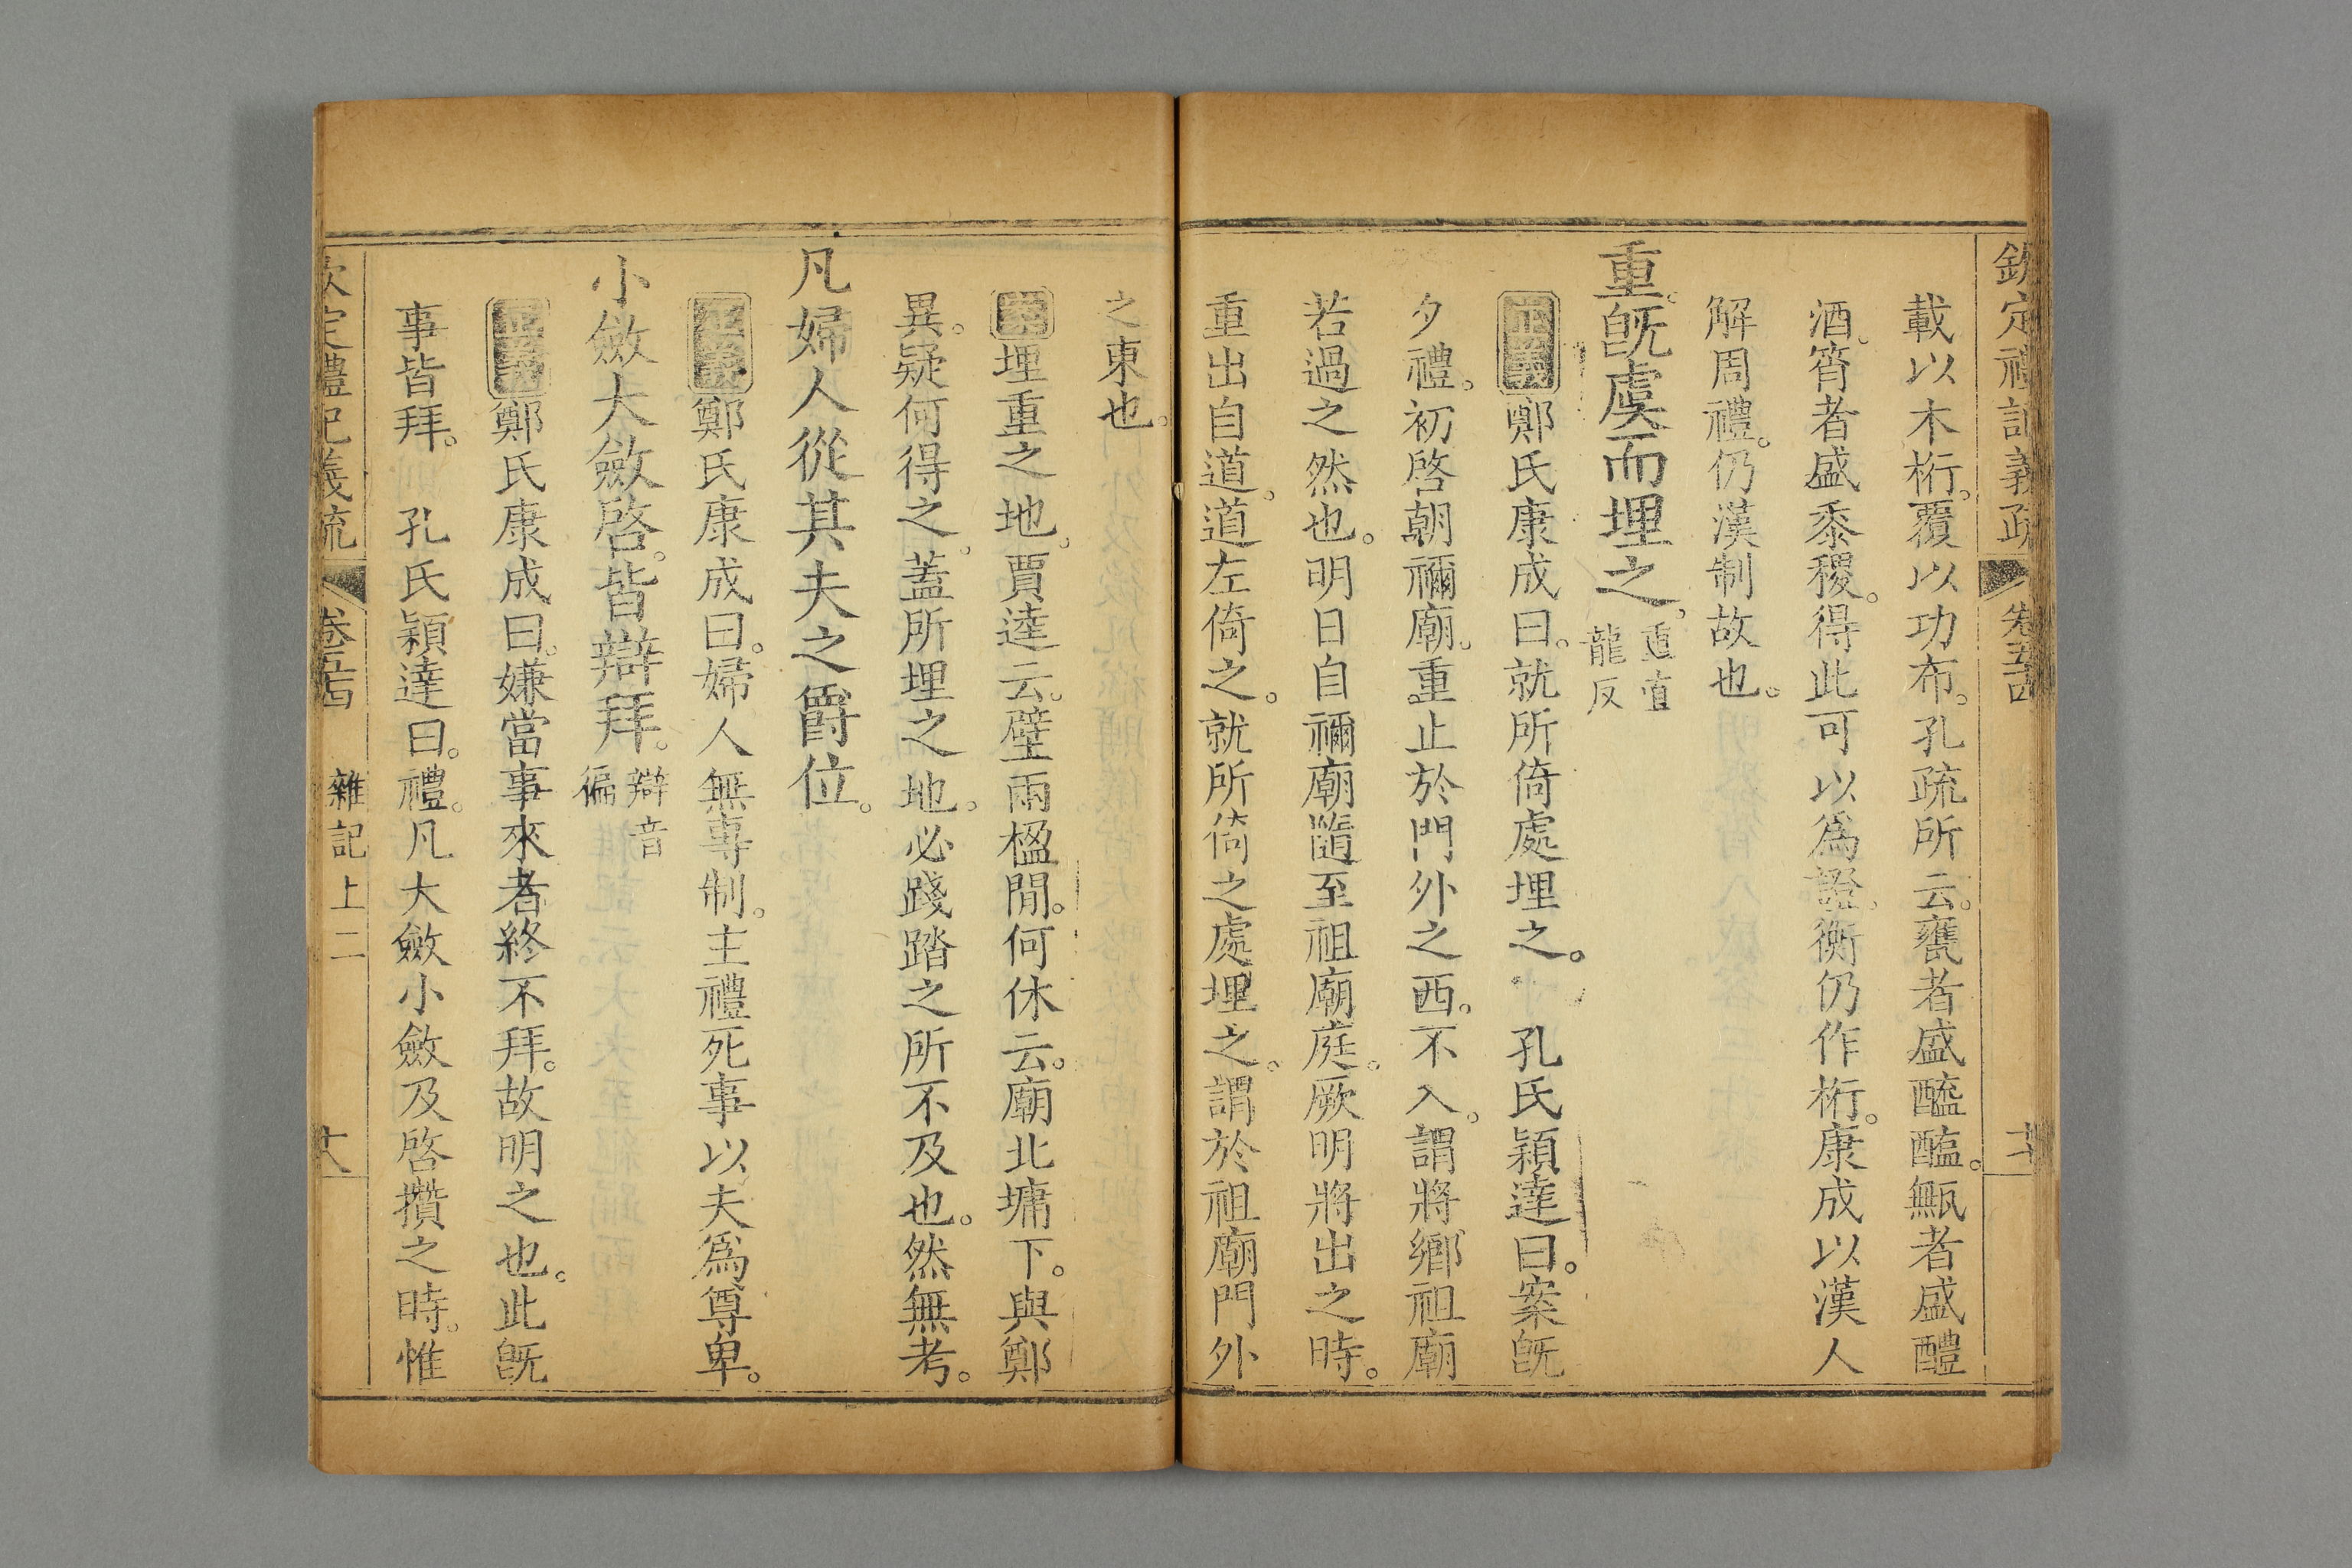 欽定禮記義疏 卷五十四
載以木桁。覆以功布。孔疏所云。甕者盛醯醢。甒者盛醴
酒。筲者盛黍稷。得此可以爲證。衡仍作桁。康成以漢人
解周禮。仍漢制故也。
重。旣虞而埋之。重直龍反
正義鄭氏康成曰。就所倚處埋之。 孔氏穎達曰。案旣
夕禮。初啓朝禰廟。重止於門外之西。不入。謂將鄉祖廟
若過之然也。明日自禰廟隨至祖廟庭。厥明將出之時。
重出自道。道左倚之。就所倚之處埋之。謂於祖廟門外
之東也。
案埋重之地。賈逵云。壁兩楹閒。何休云。廟北墉下。與鄭
異。疑何得之。蓋所埋之地。必踐踏之所不及也。然無考。
凡婦人從其夫之爵位。
正義鄭氏康成曰。婦人無專制。主禮死事以夫爲尊卑。
小斂大斂啓。皆辯拜。辯音徧
正義鄭氏康成曰。嫌當事來者終不拜。故明之也。此旣
事皆拜。 孔氏穎達曰。禮。凡大斂小斂及啓攢之時。惟
欽定禮記義疏 卷五十四 雜記上二 十八